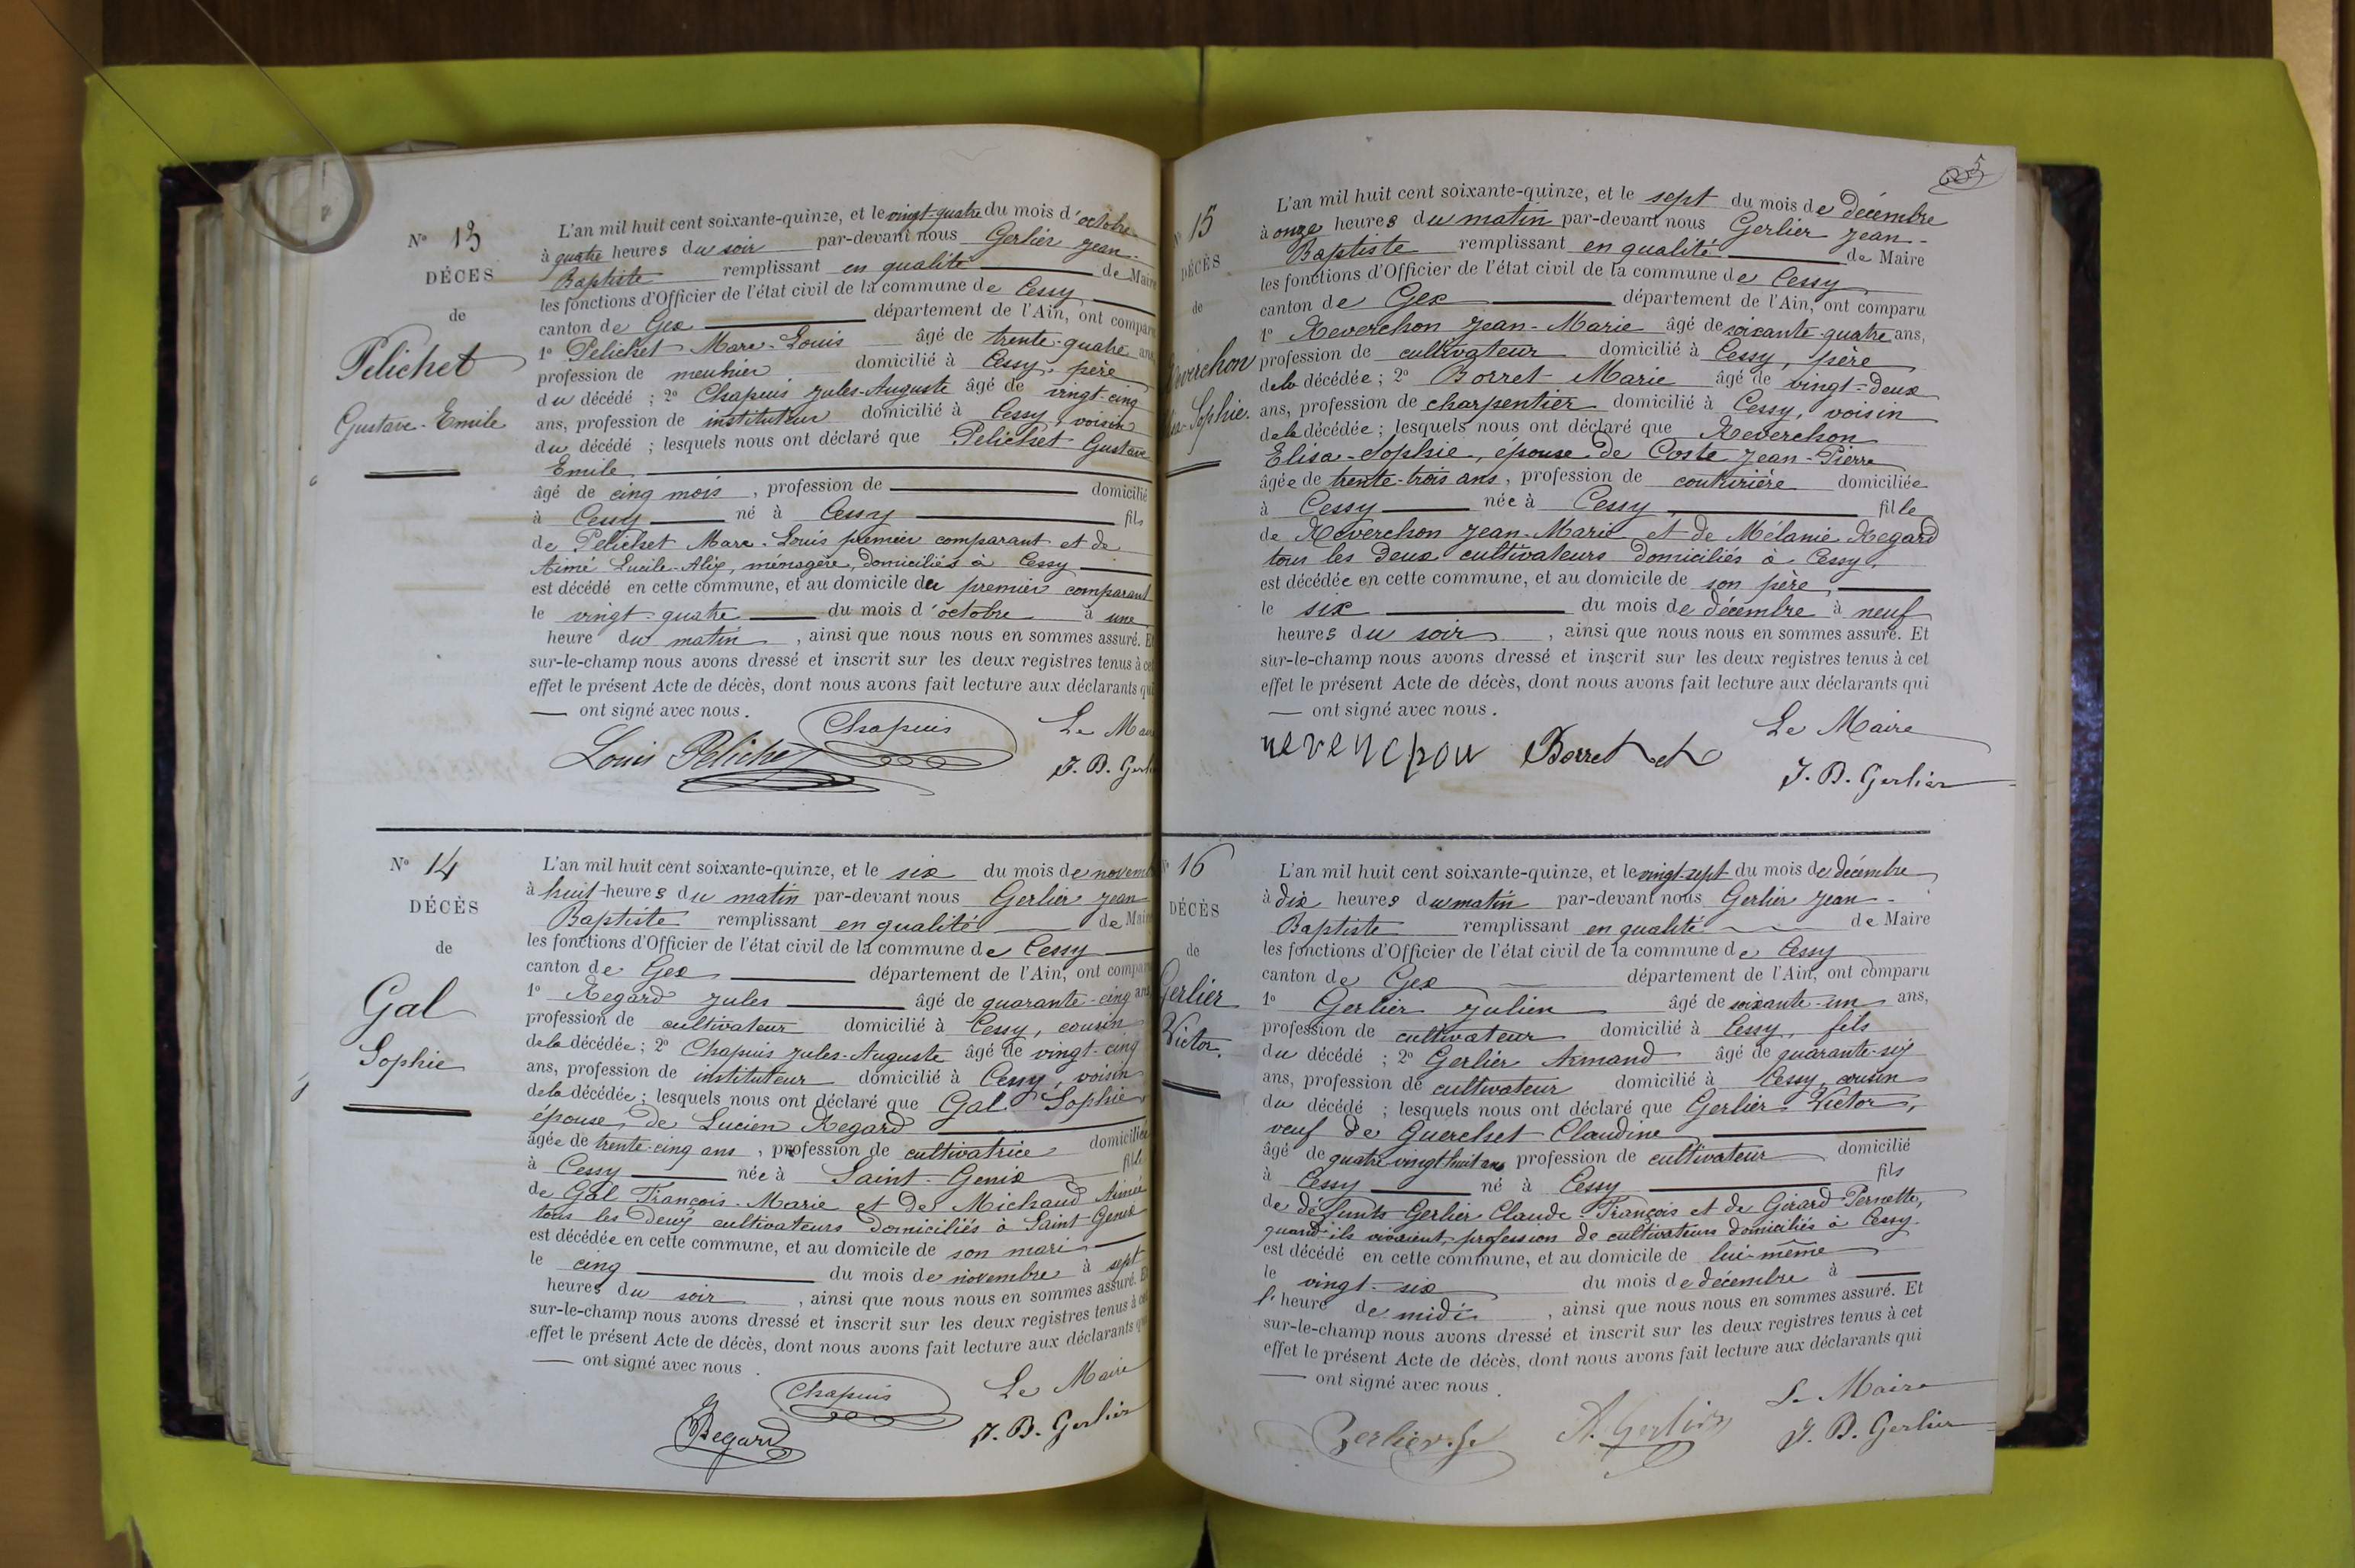 N° 13
DÉCÈS
de
Pelichet
Gustave-Emile
L'an mil huit cent soixante-quinze, et le vingt-quatre du mois d'octobre
à quatre heures du soir par-devant nous Gerlier Jean-
Baptiste remplissant en qualité de Maire
les fonctions d'Officier de l'état civil de la commune de Cessy
canton de Gex département de l'Ain, ont comparu
1° Pelichet Marc-Louis âgé de trente-quatre ans
profession de meunier domicilié à Cessy, père
du décédé ; 2° Chapuis Jules-Auguste âgé de vingt-cinq
ans, profession de instituteur domicilié à Cessy, voisin
du décédé ; lesquels nous ont déclaré que Pelichet Gustave
Emile
âgé de cinq mois, profession de domicilié
à Cessy né à Cessy fils
de Pelichet Marc-Louis premier comparant et de
Aimé Lucile-Alix, ménagère, domiciliés à Cessy
est décédé en cette commune, et au domicile du premier comparant
le vingt-quatre du mois d'octobre à une
heure du matin, ainsi que nous nous en sommes assuré. Et
sur-le-champ nous avons dressé et inscrit sur les deux registres tenus à cet
effet le présent Acte de décès, dont nous avons fait lecture aux déclarants qui
— ont signé avec nous.
Chapuis Le Maire
Louis Pelichet J. B. Gerlier
N° 14
DÉCÈS
de
Gal
Sophie
L'an mil huit cent soixante-quinze, et le six du mois de novembre
à huit heures du matin par-devant nous Gerlier Jean
Baptiste remplissant en qualité de Maire
les fonctions d'Officier de l'état civil de la commune de Cessy
canton de Gex département de l'Ain, ont comparu
1° Regard Jules âgé de quarante-cinq ans
profession de cultivateur domicilié à Cessy, cousin
de la décédée ; 2° Chapuis Jules-Auguste âgé de vingt-cinq
ans, profession de instituteur domicilié à Cessy, voisin
de la décédée ; lesquels nous ont déclaré que Gal Sophie
épouse de Lucien Regard
âgée de trente-cinq ans, profession de cultivatrice domiciliée
à Cessy née à Saint-Genix fille
de Gal François-Marie et de Michaud Aimée
tous les deux cultivateurs domiciliés à Saint-Genix
est décédée en cette commune, et au domicile de son mari
le cinq du mois de novembre à sept
heures du soir, ainsi que nous nous en sommes assuré. Et
sur-le-champ nous avons dressé et inscrit sur les deux registres tenus à cet
effet le présent Acte de décès, dont nous avons fait lecture aux déclarants qui
— ont signé avec nous.
Chapuis Le Maire
Regard J. B. Gerlier
N° 15
DÉCÈS
de
Reverchon
Sophie.
L'an mil huit cent soixante-quinze, et le sept du mois de décembre
à onze heures du matin par-devant nous Gerlier Jean-
Baptiste remplissant en qualité de Maire
les fonctions d'Officier de l'état civil de la commune de Cessy
canton de Gex département de l'Ain, ont comparu
1° Reverchon Jean-Marie âgé de soixante-quatre ans,
profession de cultivateur domicilié à Cessy, père
de la décédée ; 2° Borret Marie âgé de vingt-deux
ans, profession de charpentier domicilié à Cessy, voisin
de la décédée ; lesquels nous ont déclaré que Reverchon
Elisa-Sophie, épouse de Coste Jean-Pierre
âgée de trente-trois ans, profession de couturière domiciliée
à Cessy née à Cessy fille
de Reverchon Jean-Marie et de Mélanie Regard
tous les deux cultivateurs domiciliés à Cessy,
est décédée en cette commune, et au domicile de son père,
le six du mois de décembre à neuf
heures du soir, ainsi que nous nous en sommes assuré. Et
sur-le-champ nous avons dressé et inscrit sur les deux registres tenus à cet
effet le présent Acte de décès, dont nous avons fait lecture aux déclarants qui
— ont signé avec nous.
Le Maire
Borret
J. B. Gerlier
N° 16
DÉCÈS
de
Gerlier
Victor.
L'an mil huit cent soixante-quinze, et le vingt-sept du mois de décembre
à dix heures du matin par-devant nous Gerlier Jean-
Baptiste remplissant en qualité de Maire
les fonctions d'Officier de l'état civil de la commune de Cessy
canton de Gex département de l'Ain, ont comparu
1° Gerlier Julien âgé de soixante-un ans,
profession de cultivateur domicilié à Cessy, fils
du décédé ; 2° Gerlier Armand âgé de quarante-six
ans, profession de cultivateur domicilié à Cessy, cousin
du décédé ; lesquels nous ont déclaré que Gerlier Victor,
veuf de Guerchet Claudine
âgé de quatre-vingt-huit ans profession de cultivateur domicilié
à Cessy né à Cessy fils
de défunts Gerlier Claude-François et de Girard Pernette,
quand ils vivaient, profession de cultivateurs domiciliés à Cessy.
est décédé en cette commune, et au domicile de lui-même
le vingt-six du mois de décembre à
l'heure de midi, ainsi que nous nous en sommes assuré. Et
sur-le-champ nous avons dressé et inscrit sur les deux registres tenus à cet
effet le présent Acte de décès, dont nous avons fait lecture aux déclarants qui
— ont signé avec nous.
Le Maire
Gerlier A. Gerlier J. B. Gerlier